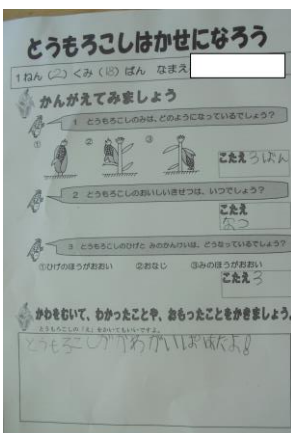 とうもろこしはかせになろう
1ねん(2)くみ(18)ばん なまえ
かんがえてみましょう
1 とうもろこしのみは、どのようになっているでしょう?
① ② ③
こたえ 3ばん
2 とうもろこしのおいしいきせつは、いつでしょう?
こたえ
なつ
3 とうもろこしのひげと みのかんけいは、どうなっているでしょう?
①ひげのほうがおおい ②おなじ ③みのほうがおおい
こたえ 3
かわをむいて、わかったことや、おもったことをかきましょう。
とうもろこしの「え」をかいてもいいですよ。
とうもろこし